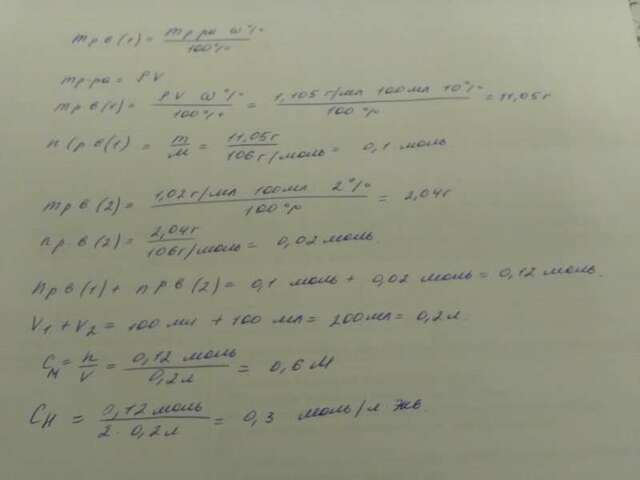 mр.в (1) = mр-ра ω% / 100%
mр-ра = ρV
mр.в (1) = ρV ω% / 100% = 1,105 г/мл 100мл 10% / 100% = 11,05г
n (р.в(1) = m / M = 11,05г / 106 г/моль = 0,1 моль
mр.в (2) = 1,02 г/мл 100мл 2% / 100% = 2,04г
nр.в (2) = 2,04г / 106г/моль = 0,02 моль.
nр.в (1) + nр.в (2) = 0,1 моль + 0,02 моль = 0,12 моль.
V1 + V2 = 100 мл + 100 мл = 200мл = 0,2л.
CM = n / V = 0,12 моль / 0,2л = 0,6 M
CH = 0,12 моль / 2 · 0,2л = 0,3 моль/л экв.